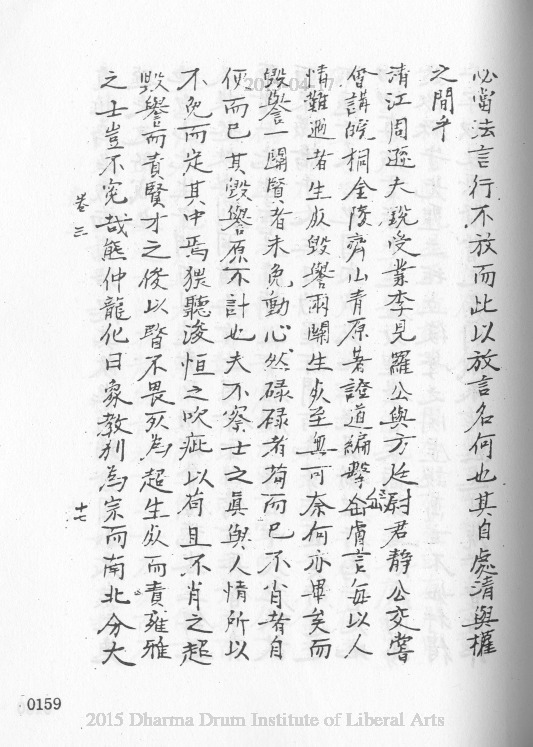 必當法言行不放而此以放言名何也其自處清與權
之間乎
清江周遜夫銳受業李見羅公與方廷尉君静公交嘗
會講皖桐金陵齊山青原著證道編擊缶膚言每以人
情難遯者生死毀譽兩關生死至無可奈何亦畢矣而
毀譽一關賢者未免動心然碌碌者苟而已不肖者自
便而已其毀譽原不計也夫不察士之真與人情所以
不免而定其中焉猥聽浚恒之吹疵以苟且不肖之超
毀譽而責賢才之俊以瞀不畏死為超生死而責雍雅
之士豈不冤哉熊仲龍化曰象教别為宗而南北分大
卷三
十七
0159
2015 Dharma Drum Institute of Liberal Arts